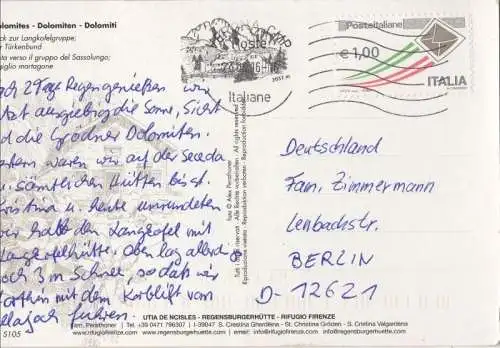 olomites - Dolomiten - Dolomiti
ck zur Langkofelgruppe;
r Türkenbund
sta verso il gruppo del Sassolungo;
iglio martagone
Poste
Italiane
Posteitaliane
€1,00
ITALIA
och 2 Tage Regen genießen wir
tzt ausgiebig die Sonne, Sicht
d die Grödner Dolomiten.
stern waren wir auf der Seceda
u. sämtlichen Hütten bis St.
ristina u. heute umrundeten
wir halt den Langkofel mit
Langkofelhütte. Oben lag allerd.
noch 3 m Schnee, so daß wir
orthin mit dem Korblift vom
ellajoch fuhren.
Deutschland
Fam. Zimmermann
Lenbachstr.
BERLIN
D-12621
Foto © Alex Perathoner
Tutti i diritti riservati - Alle Rechte vorbehalten - All rights reserved
Riproduzione vietata - Reproduktion verboten - Reproduction forbidden
UTIA DE NCISLES - REGENSBURGERHÜTTE - RIFUGIO FIRENZE
Fam. Perathoner | Tel. +39 0471 796307 | I-39047 S. Crestina Gherdëina - St. Christina Gröden - S. Cristina Valgardena
www.regensburgerhuette.com - info@rifugiofirenze.com - www.rifugiofirenze.com
S105